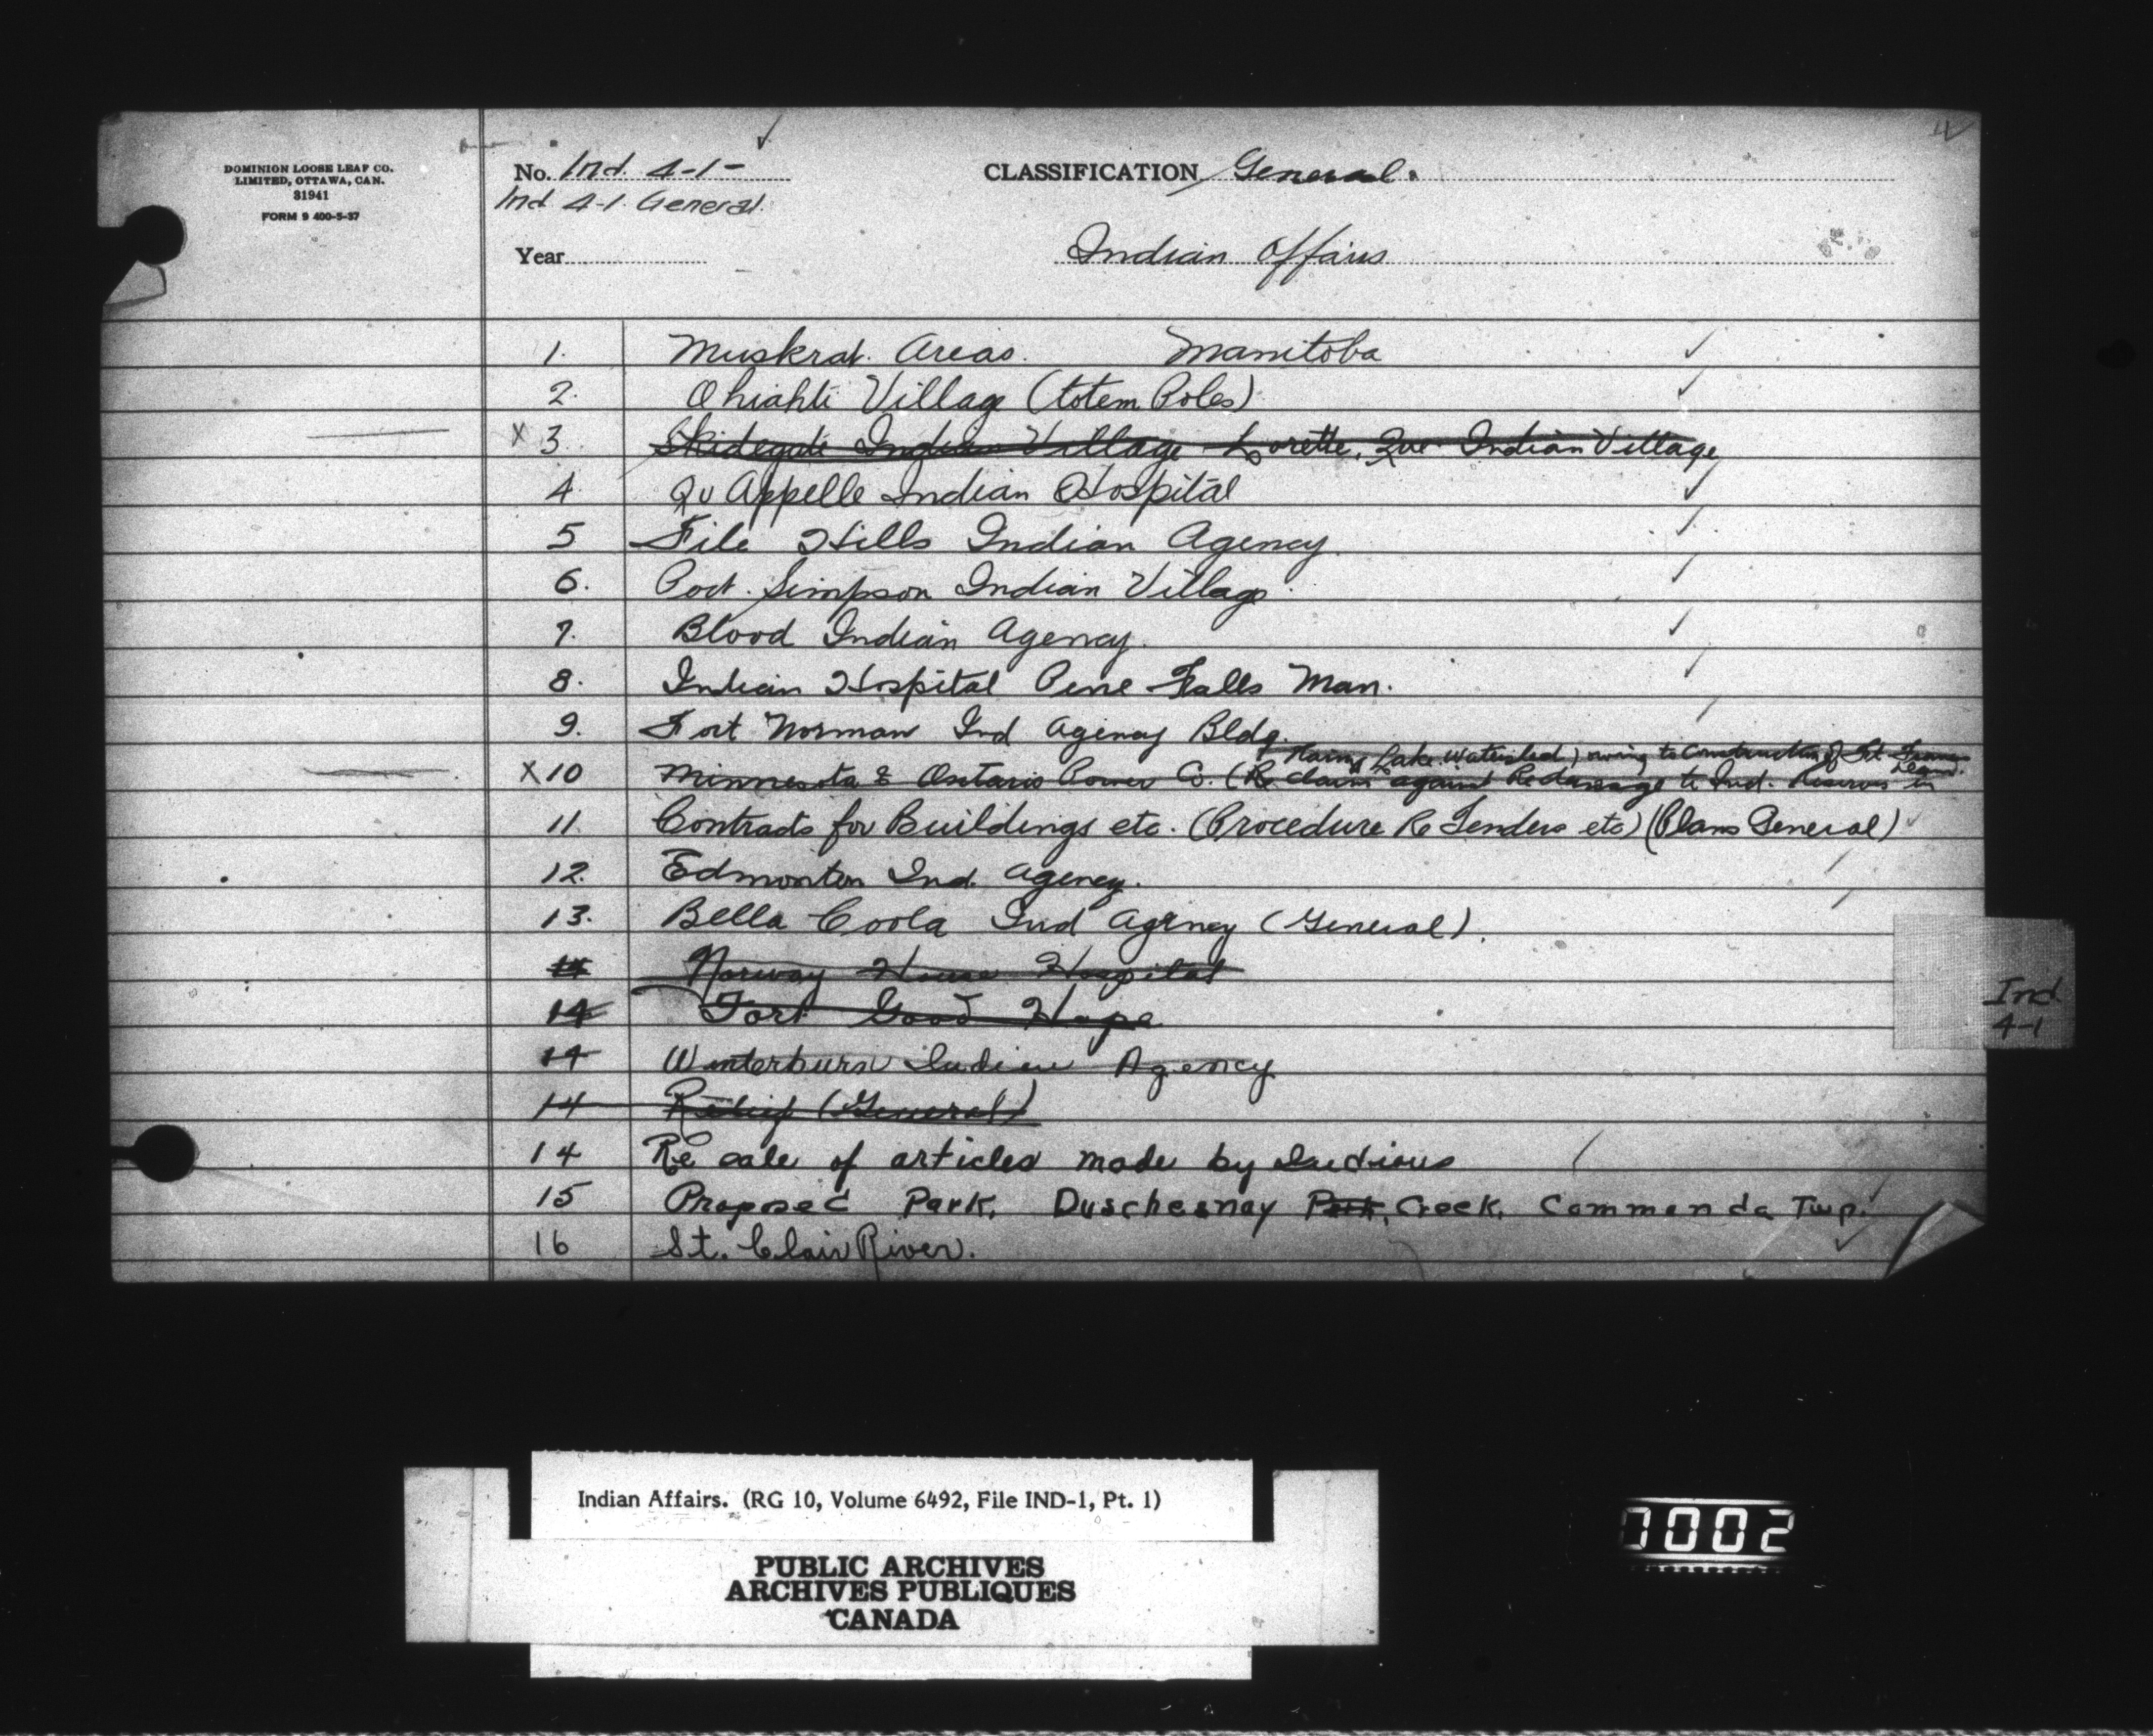 DOMINION LOOSE LEAF CO.
LIMITED, OTTAWA, CAN.
31941
FORM 9 400-5-37
No. Ind. 4-1-
CLASSIFICATION General.
Ind 4-1. General.
Year
Indian Affairs
1. Muskrat Areas. Manitoba
2. Ohiahti Village (totem Poles)
X 3. Skidegate Indian Village Lorette, Que Indian Village
4. Qu Appelle Indian Hospital
5 File Hills Indian Agency.
6. Port Simpson Indian Village
7. Blood Indian Agency.
8. Indian Hospital Pine Falls Man.
9. Fort Norman Ind Agency Bldg.
Rainy Lake Watershed) owing to Construction of Ft Frances Dam.
X 10 Minnesota & Ontario Power Co. (Re claim against Re damage to Ind. Reserves in
11. Contracts for Buildings etc. (Procedure Re Tenders etc) (Plans General)
12. Edmonton Ind. Agency.
13. Bella Coola Ind Agency (General).
14 Norway House Hospital
14 Fort Good Hope
14 Winterburn Indian Agency
14 Relief (General)
14 Re sale of articles made by Indians
15 Proposed Park, Duschesnay Park, Creek, Commanda Twp.
16 St. Clair River.
Ind
4-1
Indian Affairs. (RG 10, Volume 6492, File IND-1, Pt. 1)
PUBLIC ARCHIVES
ARCHIVES PUBLIQUES
CANADA
0002